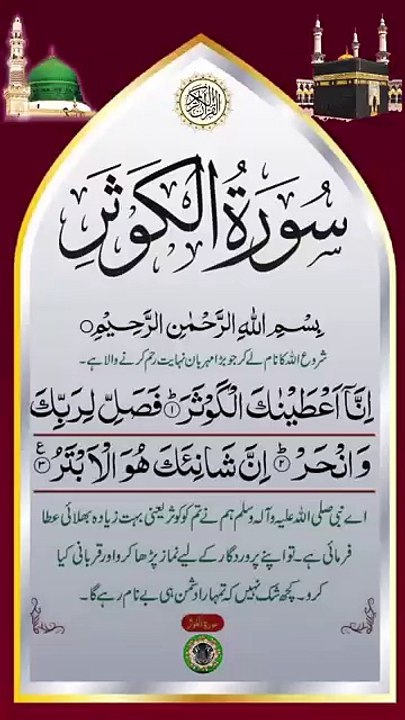 القرآن الكريم
سُورَةُ الْكَوْثَرِ
بِسْمِ اللهِ الرَّحْمٰنِ الرَّحِيْمِ
شروع اللہ کا نام لے کر جو بڑا مہربان نہایت رحم کرنے والا ہے۔
اِنَّاۤ اَعْطَيْنٰكَ الْكَوْثَرَؕ﴿۱﴾ فَصَلِّ لِرَبِّكَ
وَانْحَرْؕ﴿۲﴾ اِنَّ شَانِئَكَ هُوَ الْاَبْتَرُ﴿۳﴾ع
اے نبی صلی اللہ علیہ وآلہ وسلم ہم نے تم کو کوثر یعنی بہت زیادہ بھلائی عطا
فرمائی ہے۔ تو اپنے پروردگار کے لیے نماز پڑھا کرو اور قربانی کیا
کرو۔ کچھ شک نہیں کہ تمہارا دشمن ہی بے نام رہے گا۔
سورۃ الکوثر